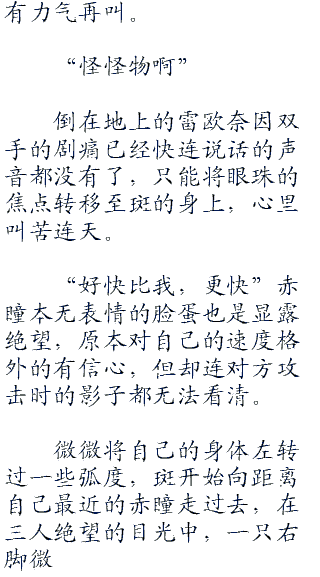 有力气再叫。
“怪怪物啊”
倒在地上的雷欧奈因双
手的剧痛已经快连说话的声
音都没有了，只能将眼珠的
焦点转移至斑的身上，心里
叫苦连天。
“好快比我，更快”赤
瞳本无表情的脸蛋也是显露
绝望，原本对自己的速度格
外的有信心，但却连对方攻
击时的影子都无法看清。
微微将自己的身体左转
过一些弧度，斑开始向距离
自己最近的赤瞳走过去，在
三人绝望的目光中，一只右
脚微